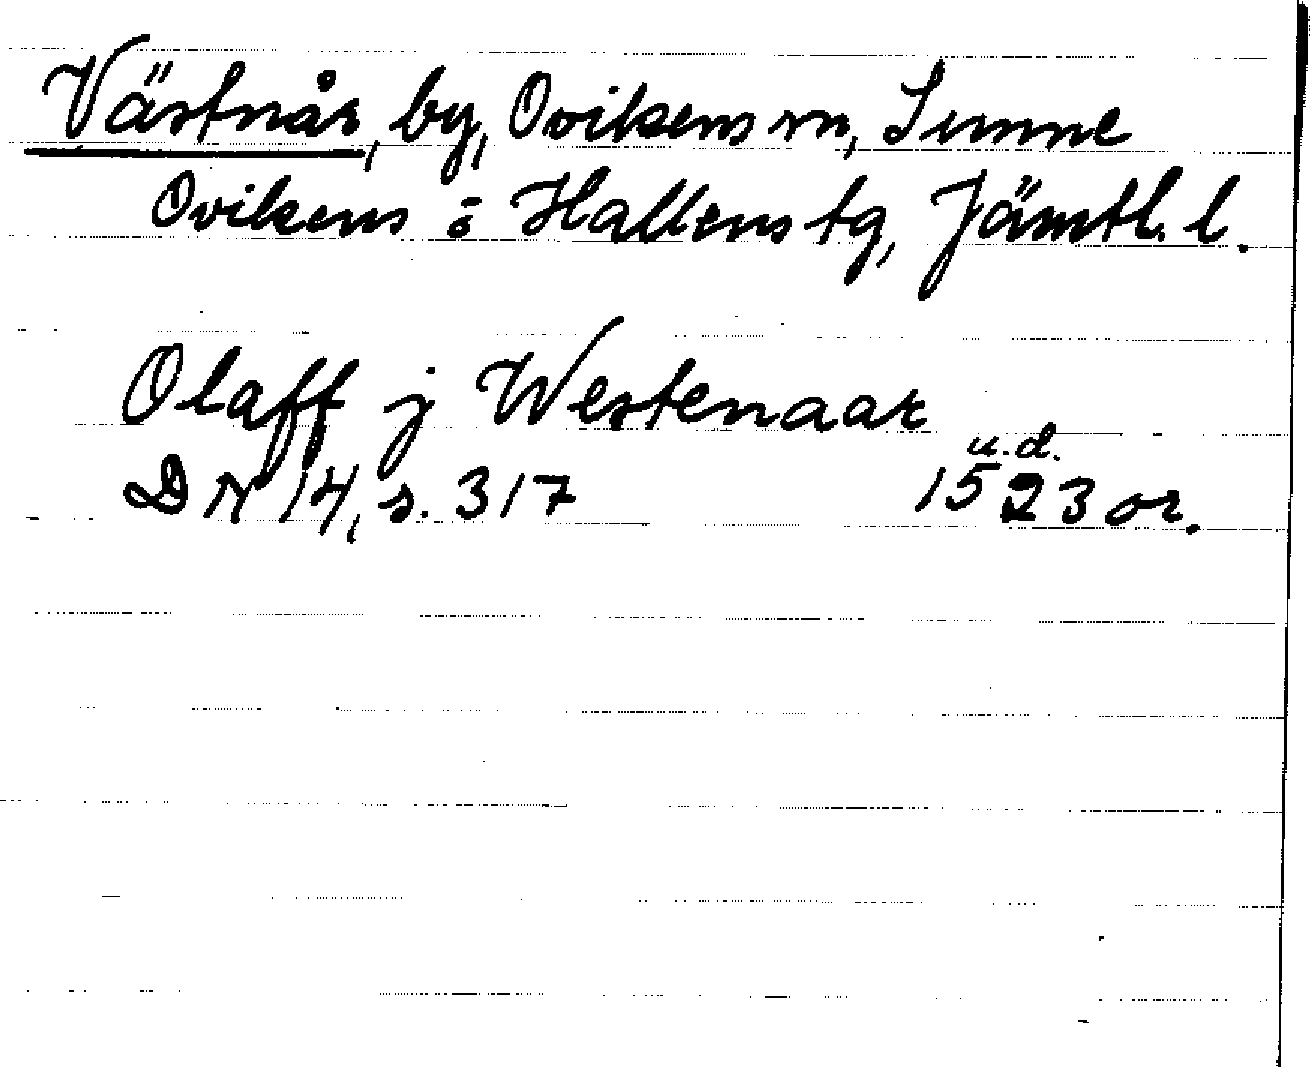 Västnår, by, Ovikens sn, Sunne
Ovikens o Hallens tg, Jämtl. l.
Olaff j Westenaar
u.d.
DN 14, s. 317 1523 or.